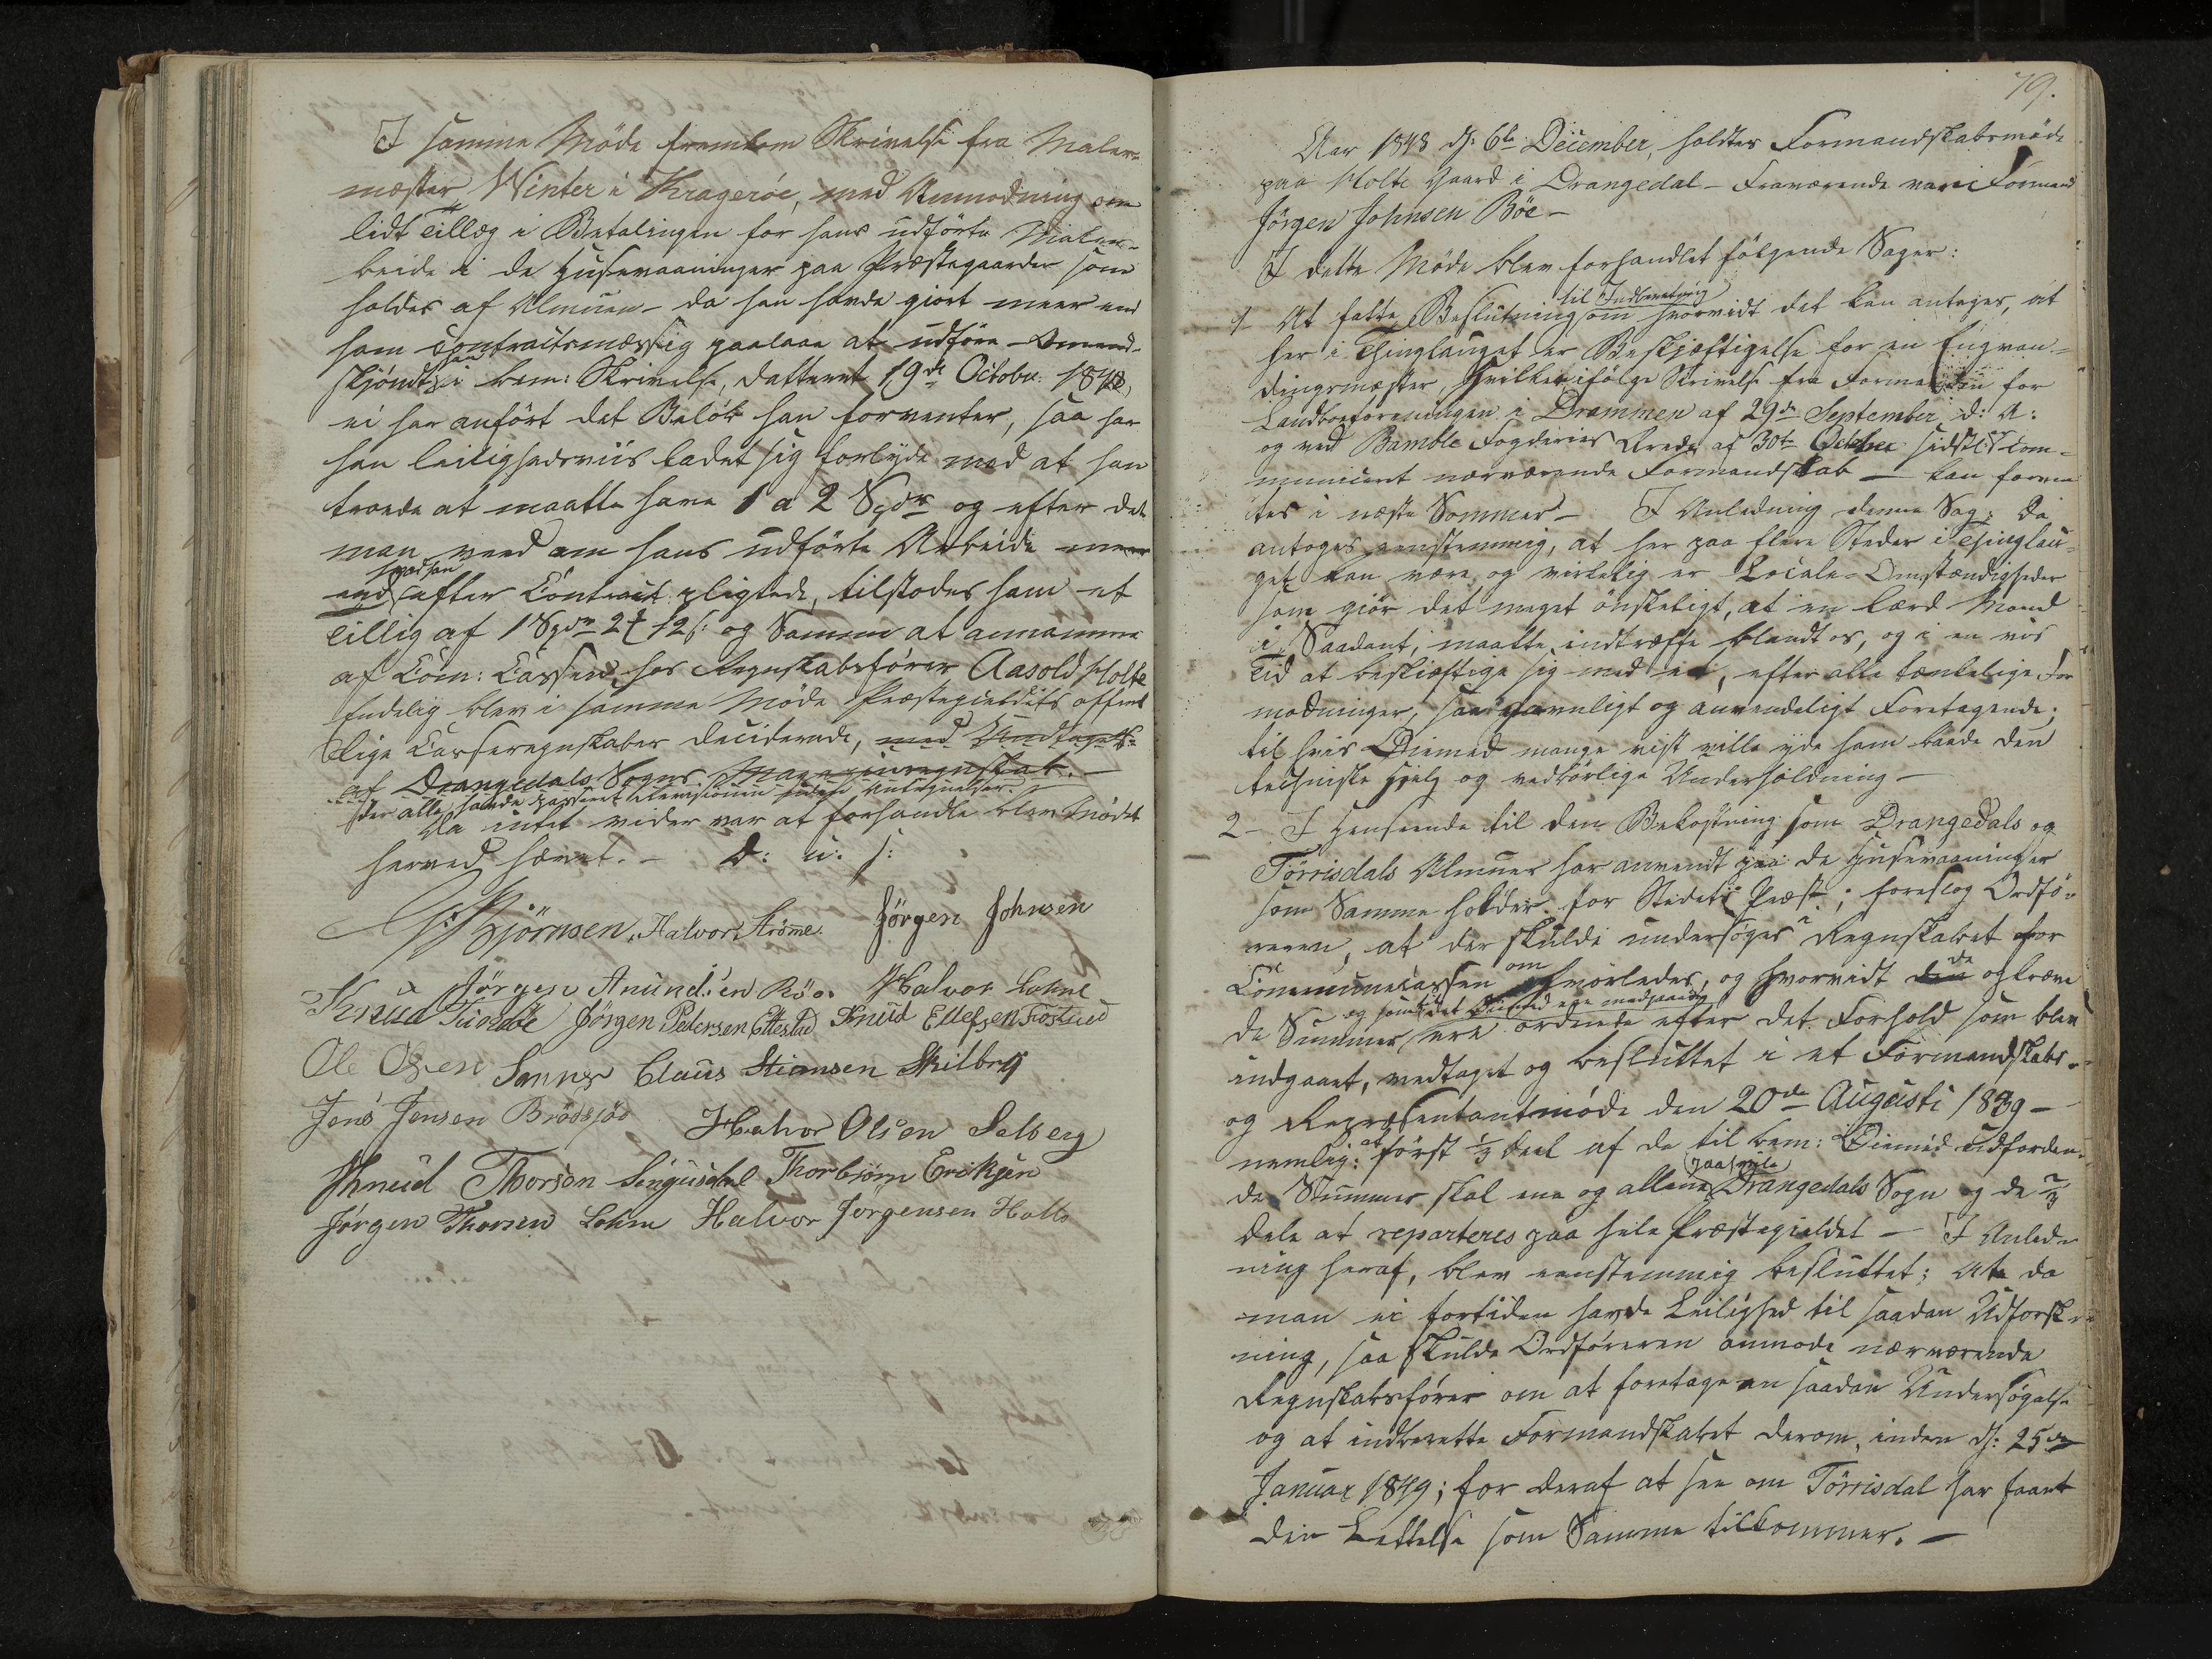 I samme Möde fremkom Skrivelse fra Maler-
mester Winter i Kragerøe, med Anmodning om
lidt Tillæg i Betalingen for hans udförte Malerar-
beide i de Huusevaaninger paa Præstegaarden som
holdes af Almuen – da han havde giort meer end
ham contractsmæssig paalaae at udföre – Omend-
skjöndt han i bem: Skrivelse, datteret 19de October 1848,
ei har anfört det Belöb han forventer, saa har
han leilighedsviis ladet sig forlyde med at han
troede at maatte have 1 a 2 Spdr og efter det
man veed om hans udförte Arbeide meer
end hvad han efter Contract pligtede, tilstodes ham et
Tillæg af 1 Spdr 2 12 s: og Samme at annamme
af Com: Cassen, hos Regnskabsförer Aasold Holte
Endelig blev i samme Möde Præstegieldets offent
lige Casseregnskaber deciderede, med Undtagelse
af Drangedals Sogns Magazinregnskab. –
der alle havde passeret Revisionen uden Antegnelser.
Da intet vider var at forhandle blev Mödet
herved hævet. – D: u: s:
Björnsen, Halvor Ströme. Jörgen Johnsen
Jörgen Anundsen Böe. Halvor Lohne
Knud Tuordöe Jörgen Pedersen Ettestad Knud Ellefsen Frostrud
Ole Olsen Sannes Claus Stiansen Skilbrg
Jens Jensen Brödsjöe Halvor Olsen Solberg
Knud Thorson Thorbjörn Eriksen
Jörgen Thorsen Lohne Halvor Jörgensen Holte
79.
Aar 1848 d: 6te December, holdtes Formandskabsmöde
paa Holte Gaard i Drangedal – Fraværende var Formand
Jörgen Johnsen Böe –
I dette Möde blev forhandlet fölgende Sager:
1 At fatte Beslutning til Indberetning om hvorvidt det kan antages, at
her i Thinglauget er Beskjæftigelse for en Engvan-
dingsmester, hvilken ifölge Skrivelse fra Formanden for
Landboforeningen i Drammen af 29de September d: A:
og ved Bamble Fogderies Brev af 30te October sidstl. com-
municeret nærværende Formandskab – kan foreven
tes i næste Sommer – I Anledning denne Sag; da
antoges eenstemmig, at her paa flere Steder i Thinglau-
get kan være og virkelig er Locale-Omstændigheder
som giör det meget önskeligt, at en lærd Mand
i Saadant, maatte indtræffe blandt os, og i en vis
Tid at beskiæftige sig med et, efter alle tænkelige For
modninger, saa gavnligt og anvendeligt Foretagende;
til hvis Øiemed mange vist ville yde ham baade den
techniske Hjelp og vedbörlige Underholdning –
2 – I Henseende til den Bekostning som Drangedals og
Törrisdals Almuer har anvendt paa de Huusevaaninger
som Samme holder for Stedets Præst; foreslog Ordfö-
reren, at der skulde undersöges Regnskabet for
Communecassen om hvorledes, og hvorvidt de afkræve
de Summer og som til det Øiemed ere medgaaede ere ordnede efter det Forhold som blev
indgaaet, vedtaget og besluttet i et Formandskabs-
og Repræsentantmöde den 20de Augusti 1839 –
nemlig: at först 1/3 deel af de til bem: Øiemed udforden-
de Summer skal ene og allene paahvile Drangedals Sogn og de 2/3
dele at reparteres paa hele Præstegieldet – I Anled-
ning heraf, blev eenstemmig besluttet; At da
man ei fortiden havde Leilighed til saadan Udforsk-
ning, saa skulde Ordföreren anmode nærværende
Regnskabsförer om at foretage en saadan Undersögelse
og at indberette Formandskabet derom, inden d: 25de
Januar 1849; for deraf at see om Törrisdal har faaet
den Lettelse som Samme tilkommer. –